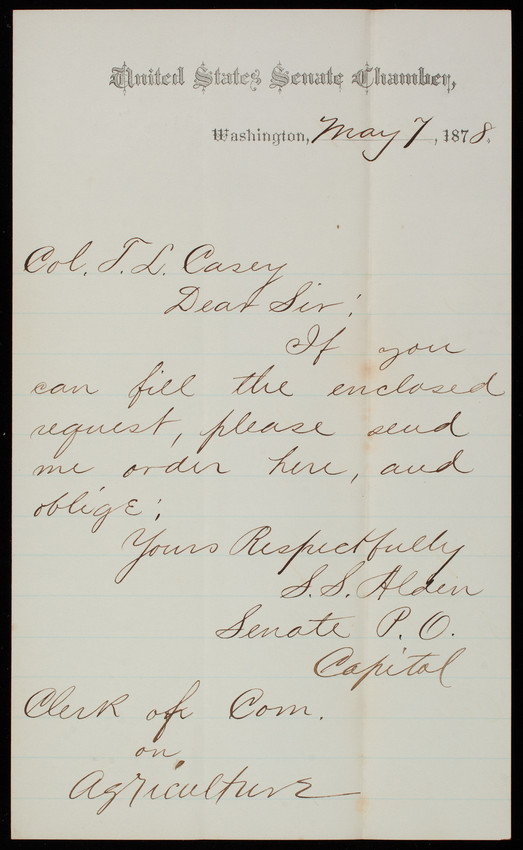 United States Senate Chamber,
Washington, May 7, 1878.
Col. T. L. Casey
Dear Sir!
If you
can fill the enclosed
request, please send
me order here, and
oblige.
Yours Respectfully
S. S. Alden
Senate P. O.
Capitol
Clerk of Com.
on
Agriculture